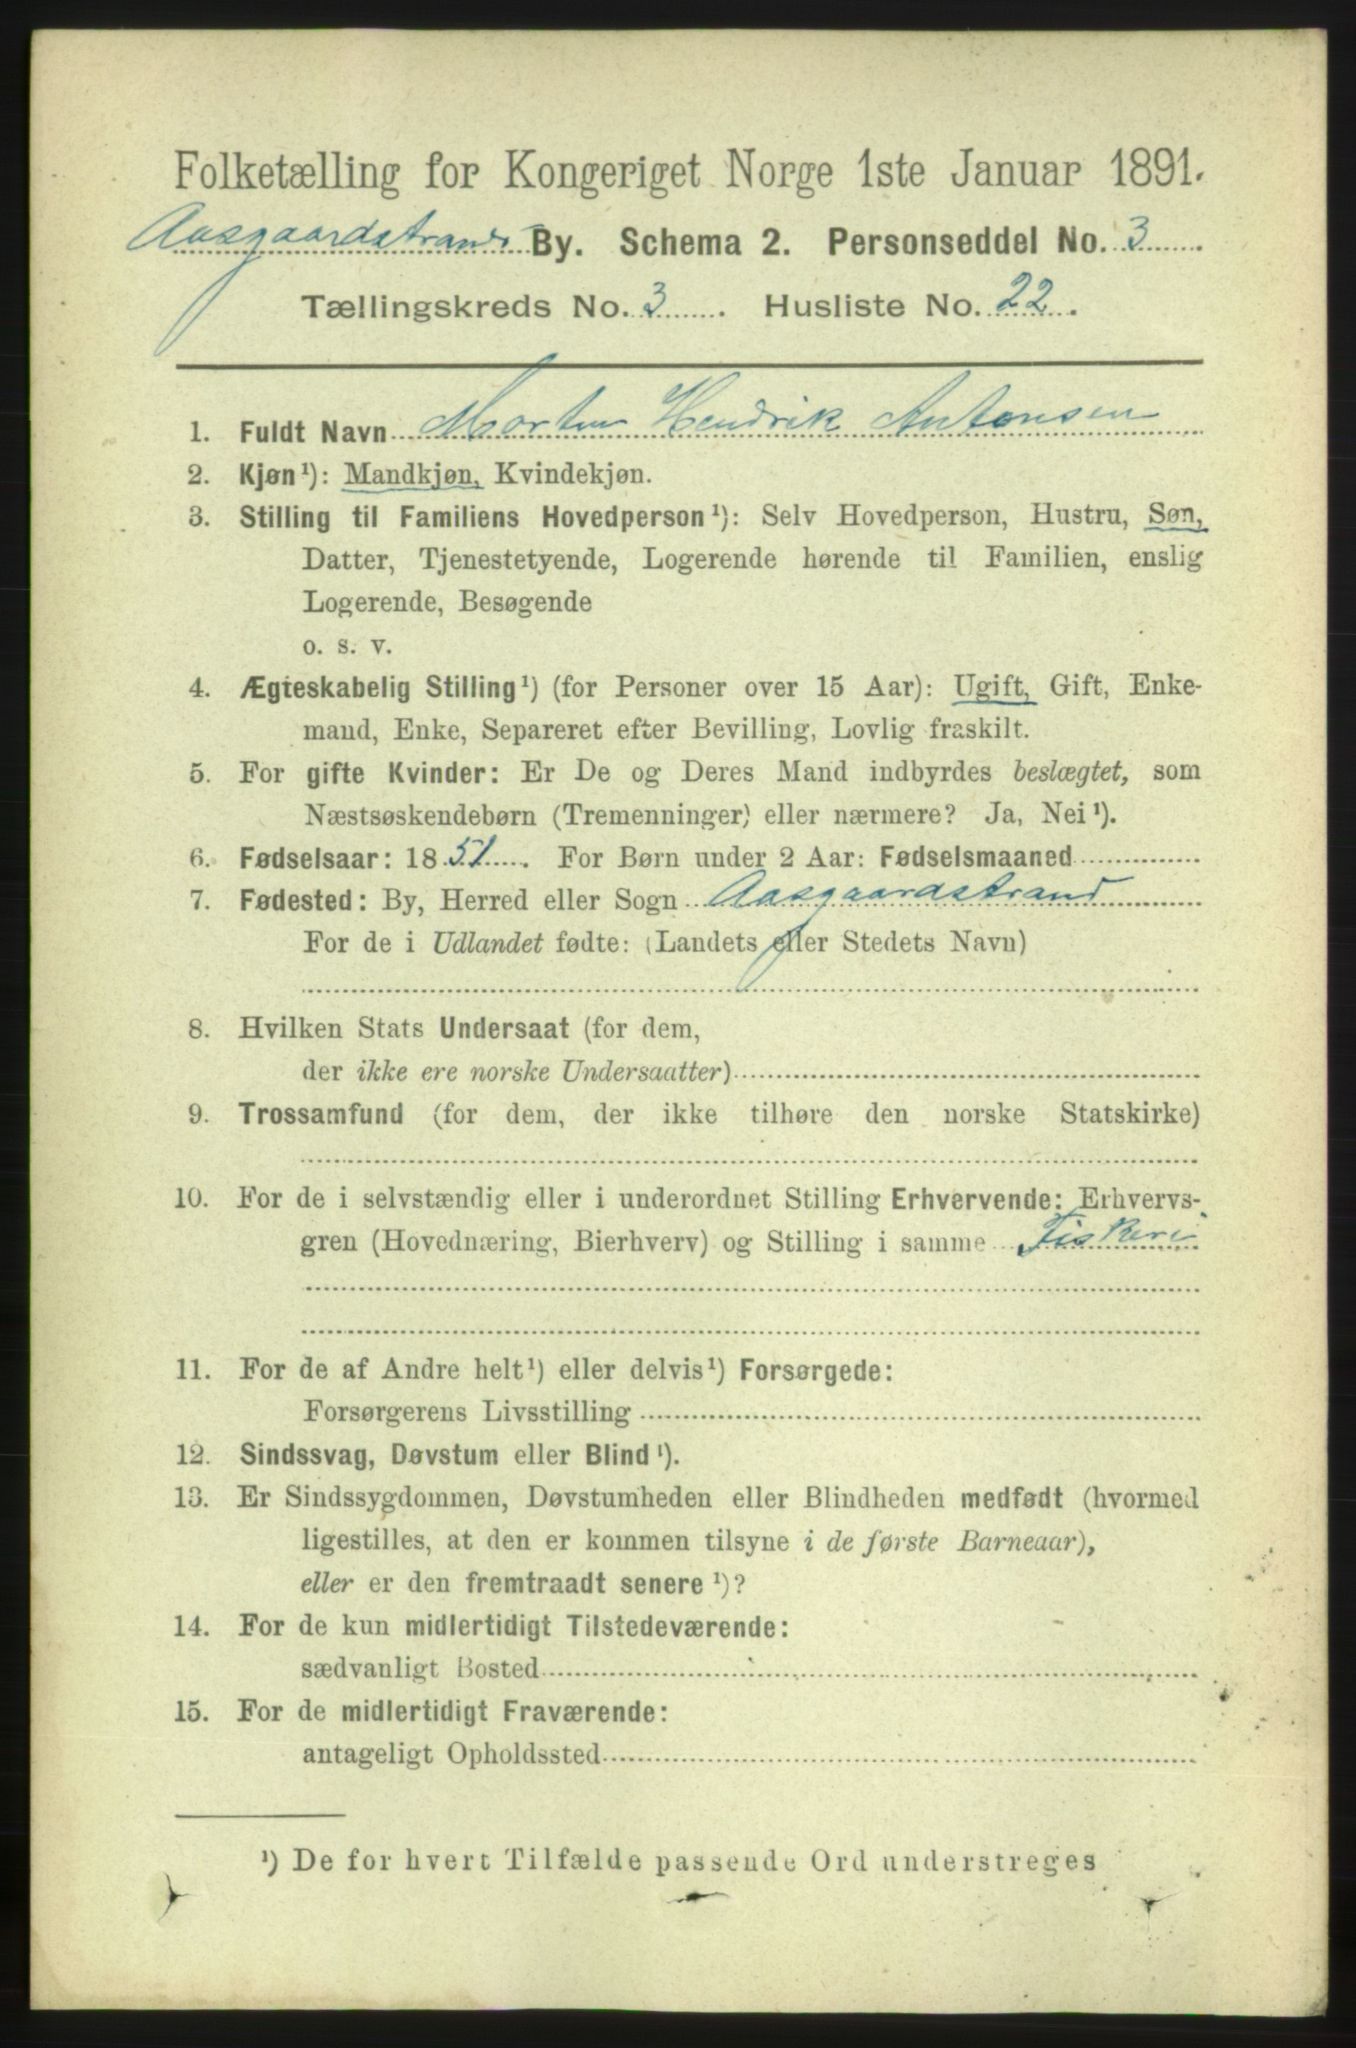 Folketælling for Kongeriget Norge 1ste Januar 1891.
Aasgaardstrands By. Schema 2. Personseddel No. 3
Tællingskreds No. 3. Husliste No. 22.
1. Fuldt Navn Morten Hendrik Antonsen
2. Kjøn¹): Mandkjøn, Kvindekjøn.
3. Stilling til Familiens Hovedperson¹): Selv Hovedperson, Hustru, Søn,
Datter, Tjenestetyende, Logerende hørende til Familien, enslig
Logerende, Besøgende
o. s. v.
4. Ægteskabelig Stilling¹) (for Personer over 15 Aar): Ugift, Gift, Enke-
mand, Enke, Separeret efter Bevilling, Lovlig fraskilt.
5. For gifte Kvinder: Er De og Deres Mand indbyrdes beslægtet, som
Næstsøskendebørn (Tremenninger) eller nærmere? Ja, Nei¹).
6. Fødselsaar: 1851. For Børn under 2 Aar: Fødselsmaaned
7. Fødested: By, Herred eller Sogn Aasgaardstrand
For de i Udlandet fødte: (Landets eller Stedets Navn)
8. Hvilken Stats Undersaat (for dem,
der ikke ere norske Undersaatter)
9. Trossamfund (for dem, der ikke tilhøre den norske Statskirke)
10. For de i selvstændig eller i underordnet Stilling Erhvervende: Erhvervs-
gren (Hovednæring, Bierhverv) og Stilling i samme Fiskeri
11. For de af Andre helt¹) eller delvis¹) Forsørgede:
Forsørgerens Livsstilling
12. Sindssvag, Døvstum eller Blind¹).
13. Er Sindssygdommen, Døvstumheden eller Blindheden medfødt (hvormed
ligestilles, at den er kommen tilsyne i de første Barneaar),
eller er den fremtraadt senere¹)?
14. For de kun midlertidigt Tilstedeværende:
sædvanligt Bosted
15. For de midlertidigt Fraværende:
antageligt Opholdssted
¹) De for hvert Tilfælde passende Ord understreges